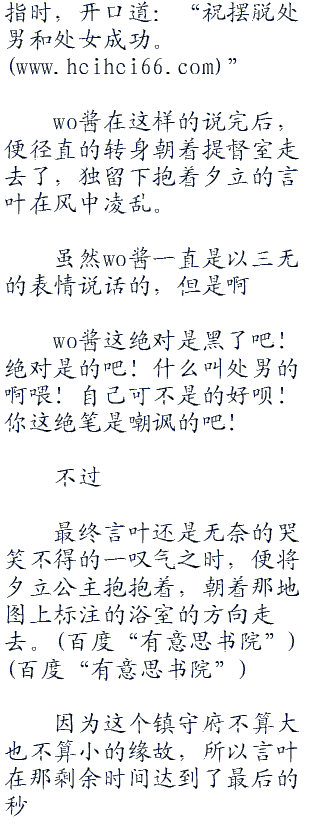 指时，开口道：“祝摆脱处
男和处女成功。
(www.hcihci66.com)”
wo酱在这样的说完后，
便径直的转身朝着提督室走
去了，独留下抱着夕立的言
叶在风中凌乱。
虽然wo酱一直是以三无
的表情说话的，但是啊
wo酱这绝对是黑了吧！
绝对是的吧！什么叫处男的
啊喂！自己可不是的好呗！
你这绝笔是嘲讽的吧！
不过
最终言叶还是无奈的哭
笑不得的一叹气之时，便将
夕立公主抱抱着，朝着那地
图上标注的浴室的方向走
去。(百度“有意思书院”)
(百度“有意思书院”)
因为这个镇守府不算大
也不算小的缘故，所以言叶
在那剩余时间达到了最后的
秒